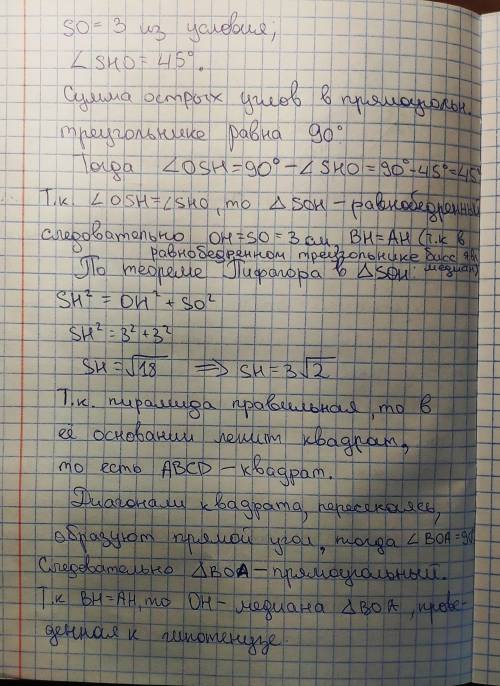 SO = 3 из условия;
∠SHO = 45°.
Сумма острых углов в прямоугольн.
треугольнике равна 90°
Тогда ∠OSH = 90° - ∠SHO = 90° - 45° = 45°
Т.к. ∠OSH = ∠SHO, то △SOH - равнобедренный
следовательно OH = SO = 3 см, BH = AH (т.к в
равнобедренном треугольнике бисс. явл
По теореме Пифагора в △SOH: медиан)
SH² = OH² + SO²
SH² = 3² + 3²
SH = √18 ⟹ SH = 3√2
Т.к. пирамида правильная, то в
её основании лежит квадрат,
то есть ABCD - квадрат.
Диагонали квадрата, пересекаясь,
образуют прямой угол, тогда ∠BOA = 90
Следовательно △BOA - прямоугольный.
Т.к BH = AH, то OH - медиана △BOA, прове-
денная к гипотенузе.